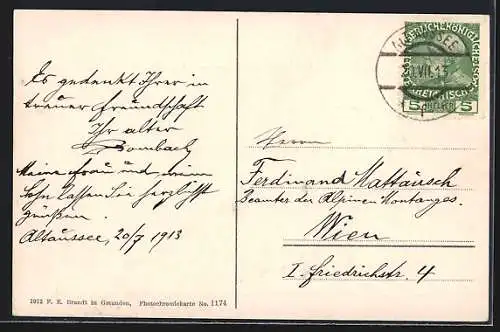 Es gedenkt Ihrer in
treuer Freundschaft
Ihr alter
Bombach
Meine Frau und mein
Sohn lassen Sie herzlichst
grüßen.
Altaussee, 20/7 1913
1912 F. E. Brandt in Gmunden, Photochromiekarte No. 1174
ALT AUSSEE
20.VII.13
5 5
Herrn
Ferdinand Mattausch
Beamter der Alpinen Montanges.
Wien
I. Friedrichstr. 4